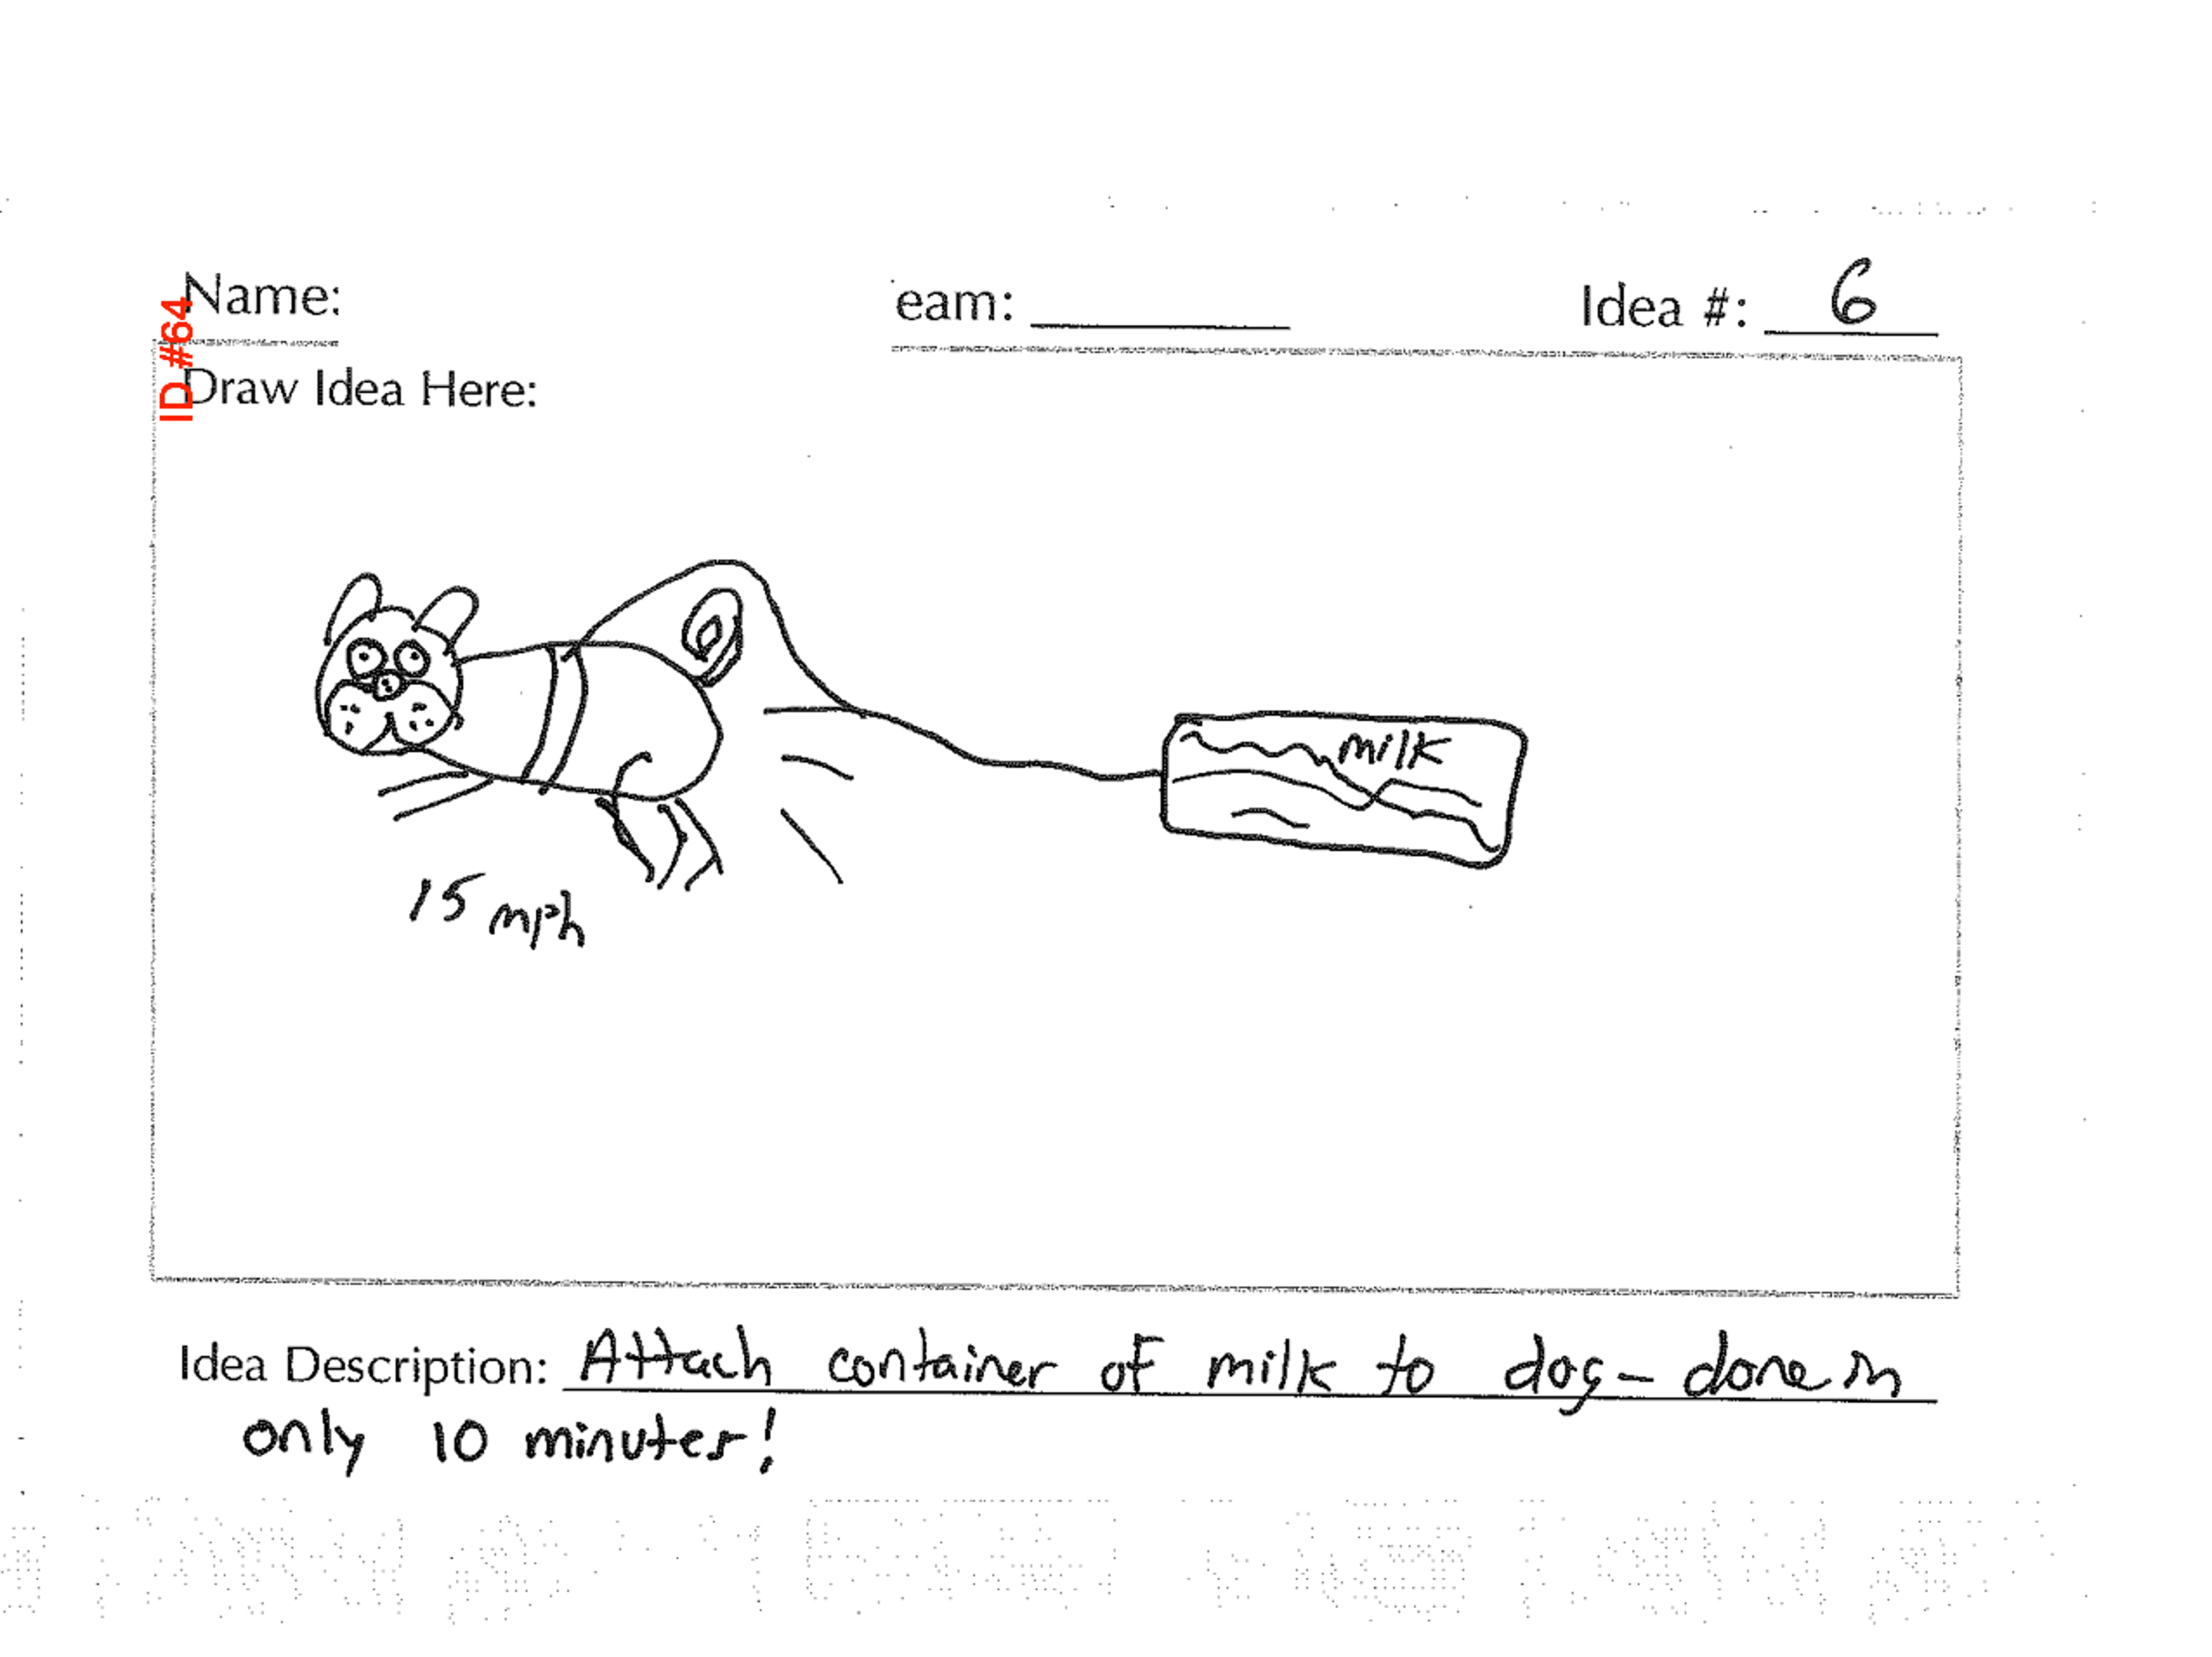 Name: eam: Idea #: 6
ID #64
Draw Idea Here:
milk
15 mph
Idea Description: Attach container of milk to dog - done in
only 10 minutes!